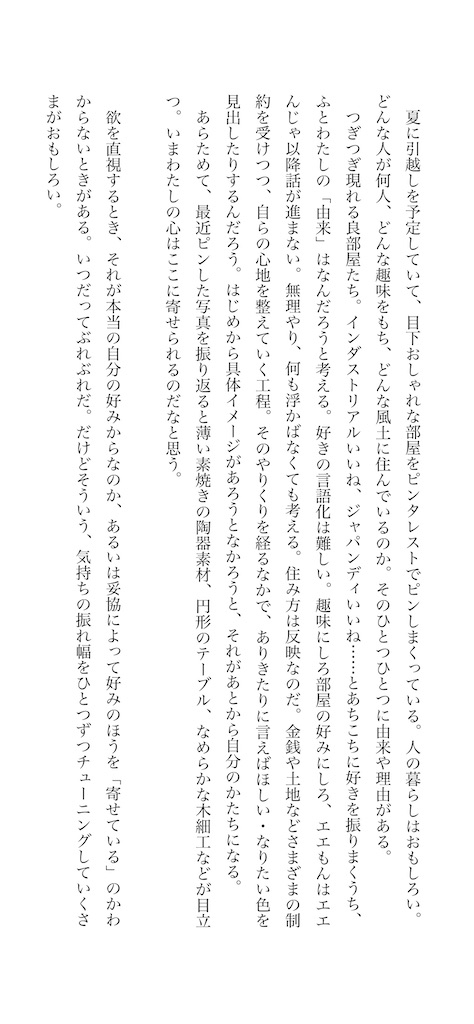 夏に引越しを予定していて、目下おしゃれな部屋をピンタレストでピンしまくっている。人の暮らしはおもしろい。
どんな人が何人、どんな趣味をもち、どんな風土に住んでいるのか。そのひとつひとつに由来や理由がある。
つぎつぎ現れる良部屋たち。インダストリアルいいね、ジャパンディいいね……とあちこちに好きを振りまくうち、
ふとわたしの「由来」はなんだろうと考える。好きの言語化は難しい。趣味にしろ部屋の好みにしろ、エエもんはエエ
んじゃ以降話が進まない。無理やり、何も浮かばなくても考える。住み方は反映なのだ。金銭や土地などさまざまの制
約を受けつつ、自らの心地を整えていく工程。そのやりくりを経るなかで、ありきたりに言えばほしい・なりたい色を
見出したりするんだろう。はじめから具体イメージがあろうとなかろうと、それがあとから自分のかたちになる。
あらためて、最近ピンした写真を振り返ると薄い素焼きの陶器素材、円形のテーブル、なめらかな木細工などが目立
つ。いまわたしの心はここに寄せられるのだなと思う。
欲を直視するとき、それが本当の自分の好みからなのか、あるいは妥協によって好みのほうを「寄せている」のかわ
からないときがある。いつだってぶれぶれだ。だけどそういう、気持ちの振れ幅をひとつずつチューニングしていくさ
まがおもしろい。